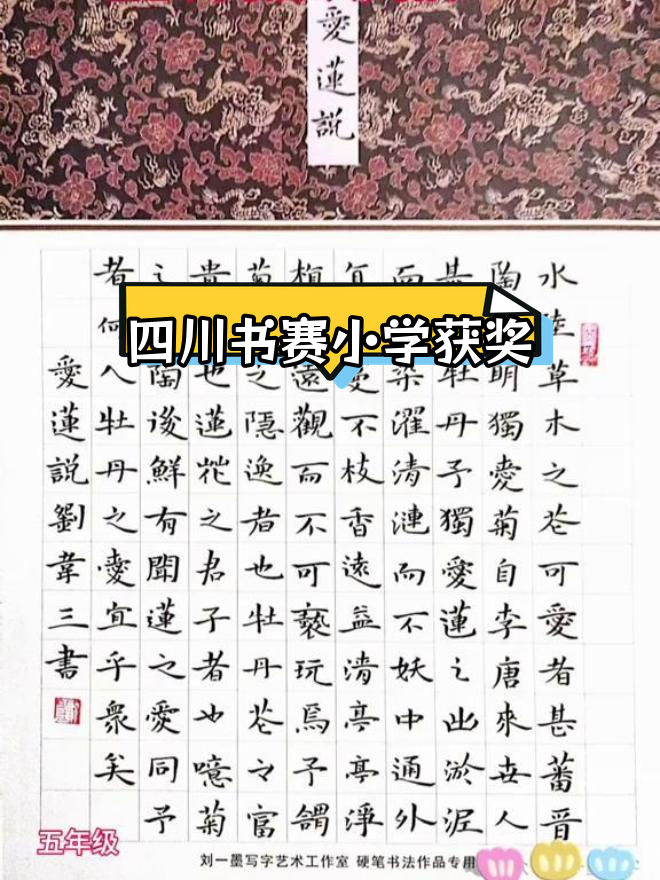 愛蓮説
四川书赛小学获奖
水陸草木之花可愛者甚蕃晋
陶明獨愛菊自李唐來世人
甚牡丹予獨愛蓮之出淤泥
而染濯清漣而不妖中通外
直蔓不枝香遠益清亭亭淨
植遠觀而不可褻玩焉予謂
菊之隱逸者也牡丹花之富
貴也蓮花之君子者也噫菊
之陶後鮮有聞蓮之愛同予
者何人牡丹之愛宜乎衆矣
愛蓮説劉葦三書
五年级
刘一墨写字艺术工作室 硬笔书法作品专用